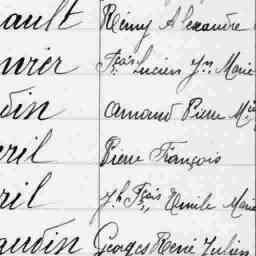 ault Rémy Alexandre
urier Fçois Lucien Jn Marie
din Armand Pierre M
ril Pierre François
ril Jh Fçois Emile Marie
audin Georges René Julien